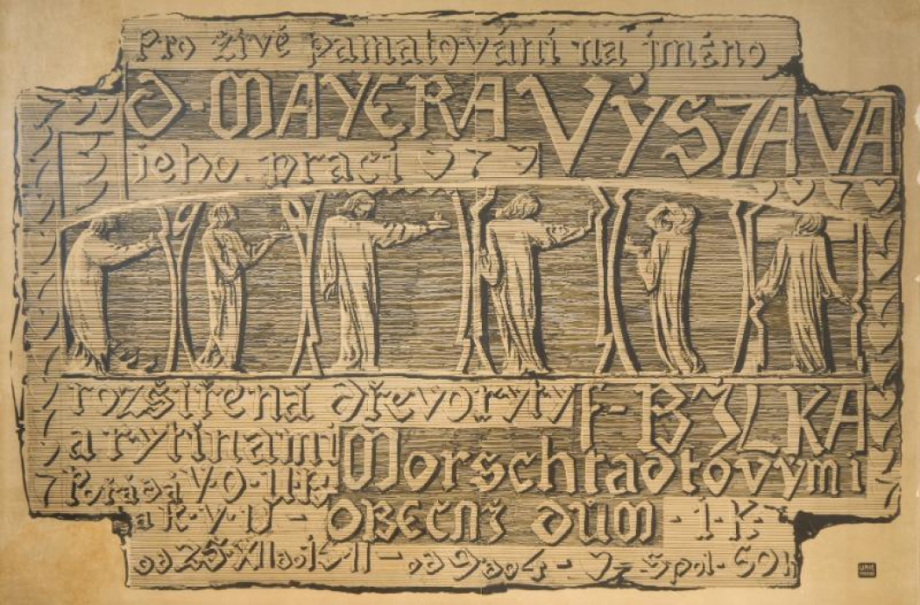 Pro živé pamatování na jméno
D. MAYERA VÝSTAVA
jeho prací
rozšířena dřevoryty F. BÍLKA
a rytinami Morschtadtovými
Pořádá V.O.
a K.V.U - OBECNÍ DŮM - I.K.
od 25 XII do - II - od 9 do 4 - V. Spol. 60h